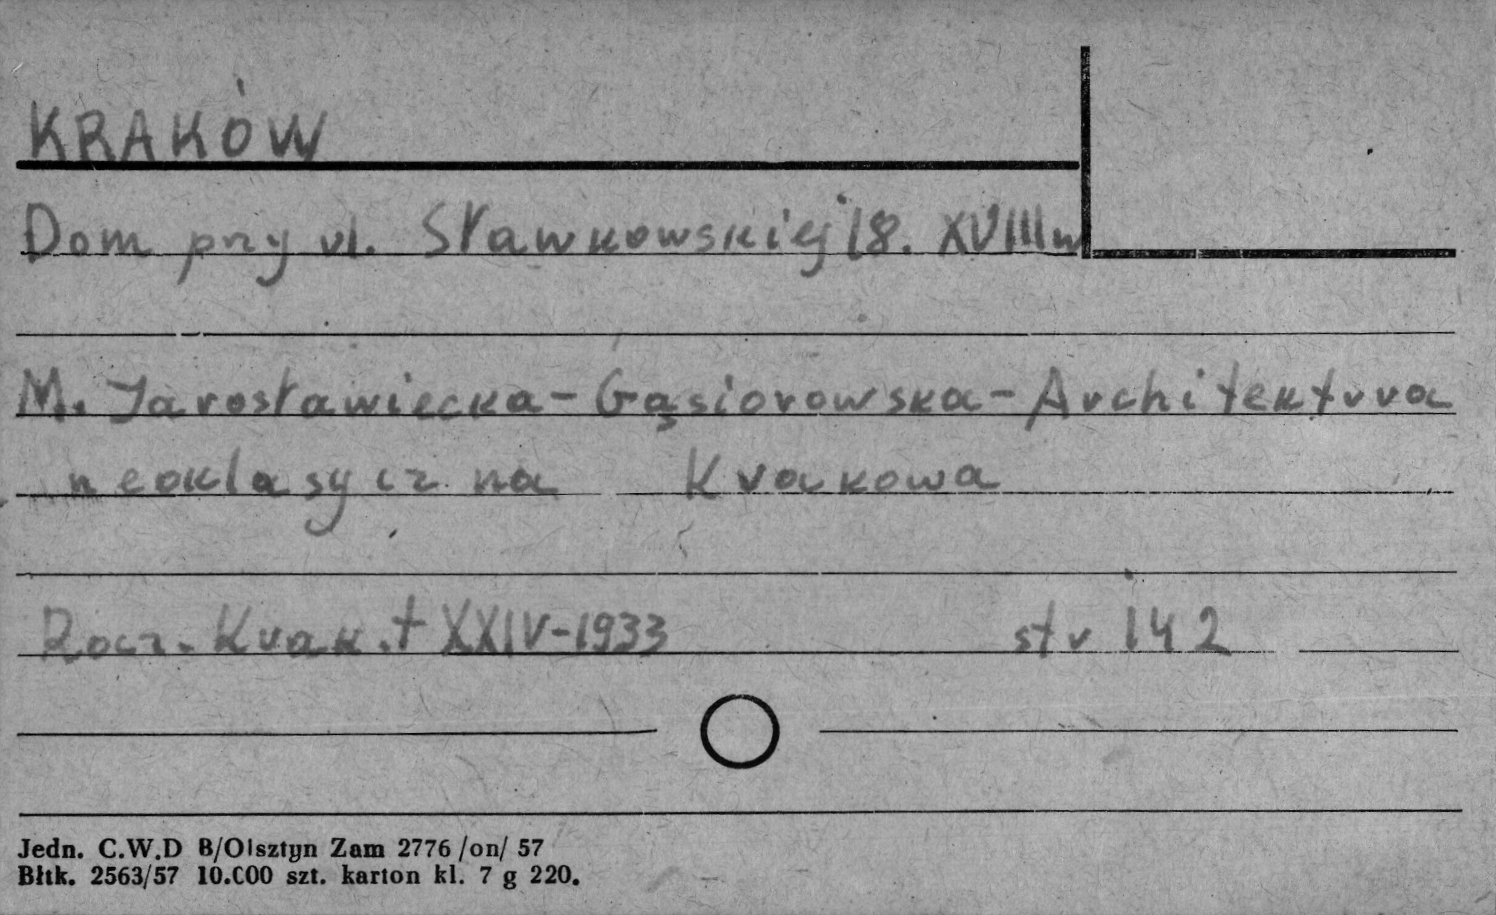 KRAKÓW
Dom przy ul. Sławkowskiej 18. XVIII w
M. Jarosławiecka - Gąsiorowska - Architektura
neoklasyczna Krakowa
Rocz. Krak. t XXIV-1933 str 142
Jedn. C.W.D B/Olsztyn Zam 2776 /on/ 57
Błtk. 2563/57 10.000 szt. karton kl. 7 g 220.